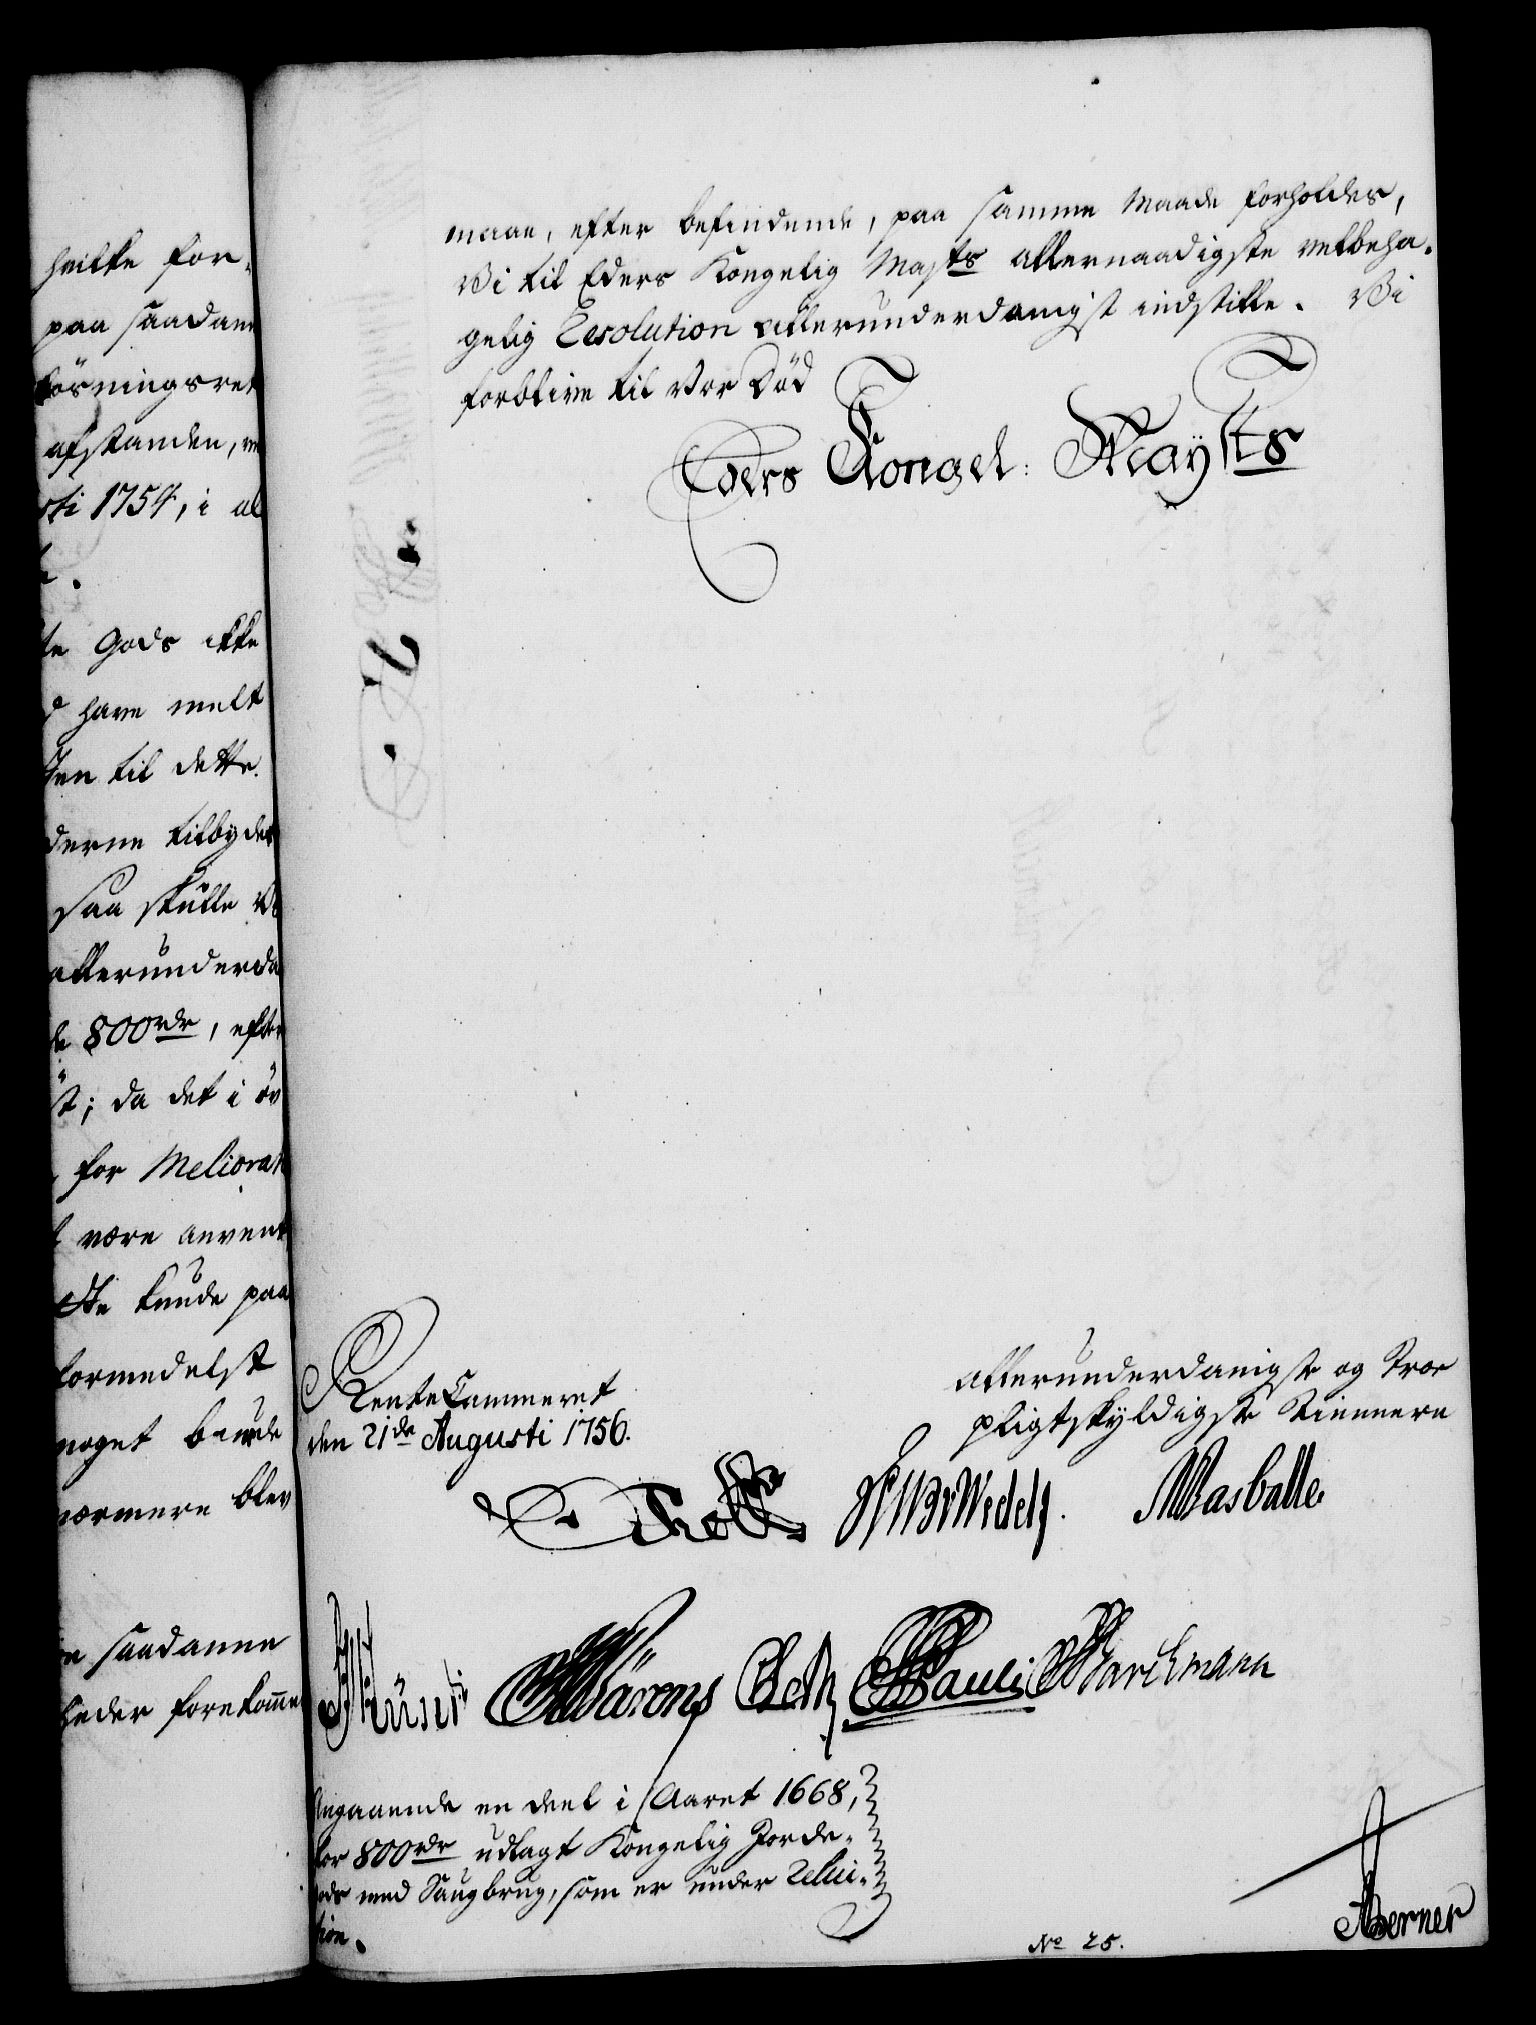 hvilke for-
paa saadan
løsningsret
afstanden,
sti 1754, i al
Gods ikke
have melt
ten til dette.
derne tilbyder
saa skulle Vi
allerunderda
de 800 rdr, efter
st; da det i öv
for Meliorat
være anvent
kunde paa
formedelst
noget burde
nærmere blev
saadanne
heder forekomme
maae, efter befindende, paa samme Maade forholdes,
Vi til Eders Kongelig Maysts allernaadigste velbeha-
gelig Resolution allerunderdanigst indstille. Vi
forblive til Vor Død
Eders Kongel: Maysts
RenteCammeret
den 21de Augusti 1756.
allerunderdanigste og Troe
pligtskyldigste Tiennere
Holst Wedell. Masballe
Bärens Beth Pauli Marckmann
Angaaende en deel i Aaret 1668,
for 800 rdr udlagt Kongelig Jorde-
gods med Saugbrug, som er under Relui-
tion.
No 25.
Berner